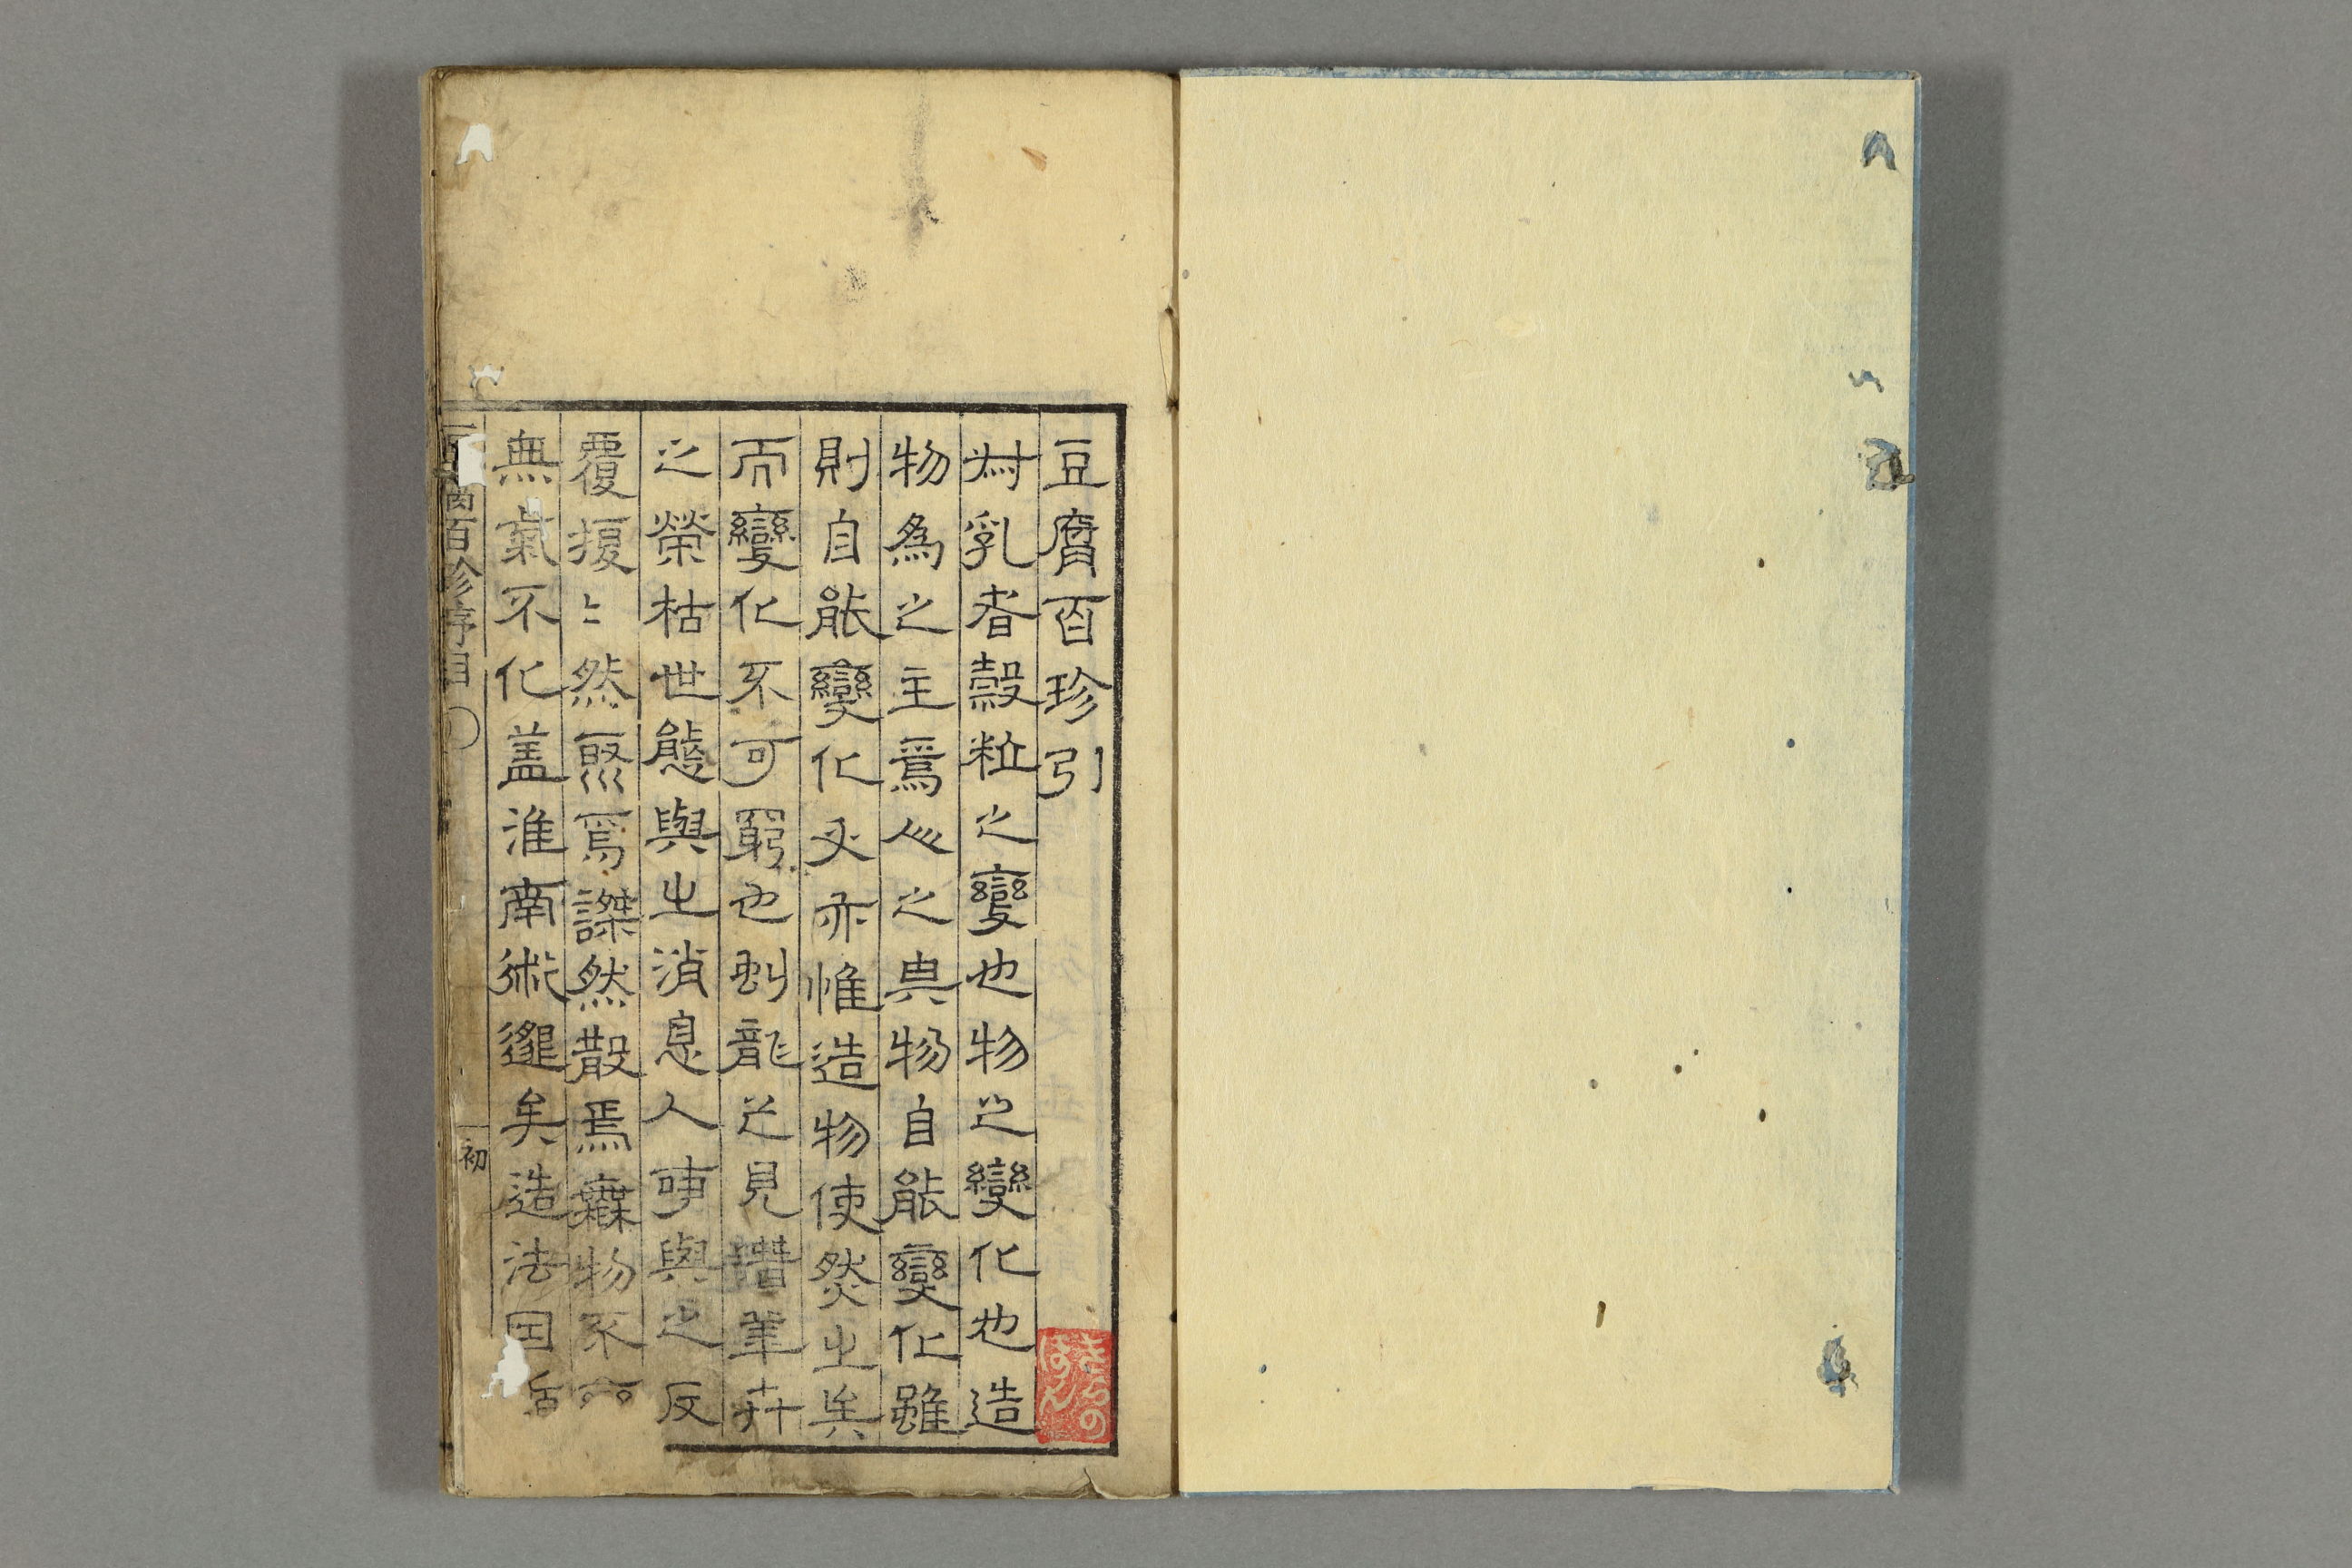 豆腐百珍引
菽乳者穀粒之變也物之變化也造
物為之主焉心之與物自能變化雖
則自能變化又亦惟造物使然之矣
而變化不可窮也龍之見
之榮枯世態與之消息人事與之反
覆擾々然熙焉謀然散焉物不
無氣不化蓋淮南術邈矣造法因
百珍序目
初
きらのはん